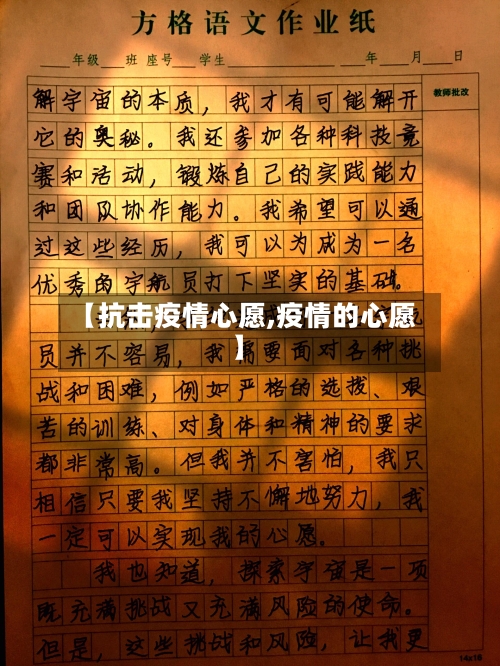 方格语文作业纸
年级 班 座号 学生 年 月 日
教师批改
解宇宙的本质，我才有可能解开
它的奥秘。我还参加各种科技竞
赛和活动，锻炼自己的实践能力
和团队协作能力。我希望可以通
过这些经历，我可以为成为一名
优秀的宇航员打下坚实的基础。
【抗击疫情心愿,疫情的心愿
】
员并不容易，我需要面对各种挑
战和困难，例如严格的选拨、艰
苦的训练、对身体和精神的要求
都非常高。但我并不害怕，我只
相信只要我坚持不懈地努力，我
一定可以实现我的心愿。
我也知道，探索宇宙是一项
既充满挑战又充满风险的使命。
但是，这些挑战和风险，让我更
14x18